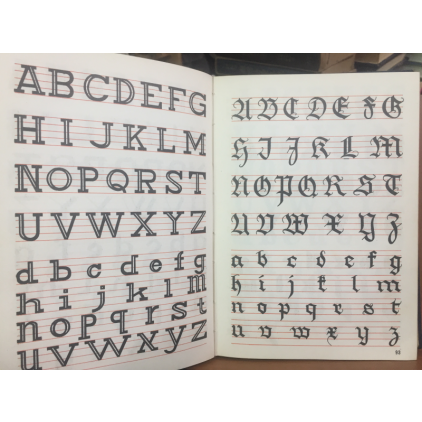 A B C D E F G
H I J K L M
N O P Q R S T
U V W X Y Z
a b c d e f g
h i j k l m
n o p q r s t
u v w x y z
A B C D E F G
H I J K L M
N O P Q R S T
U V W X Y Z
a b c d e f g
h i j k l m
n o p q r s t
u v w x y z